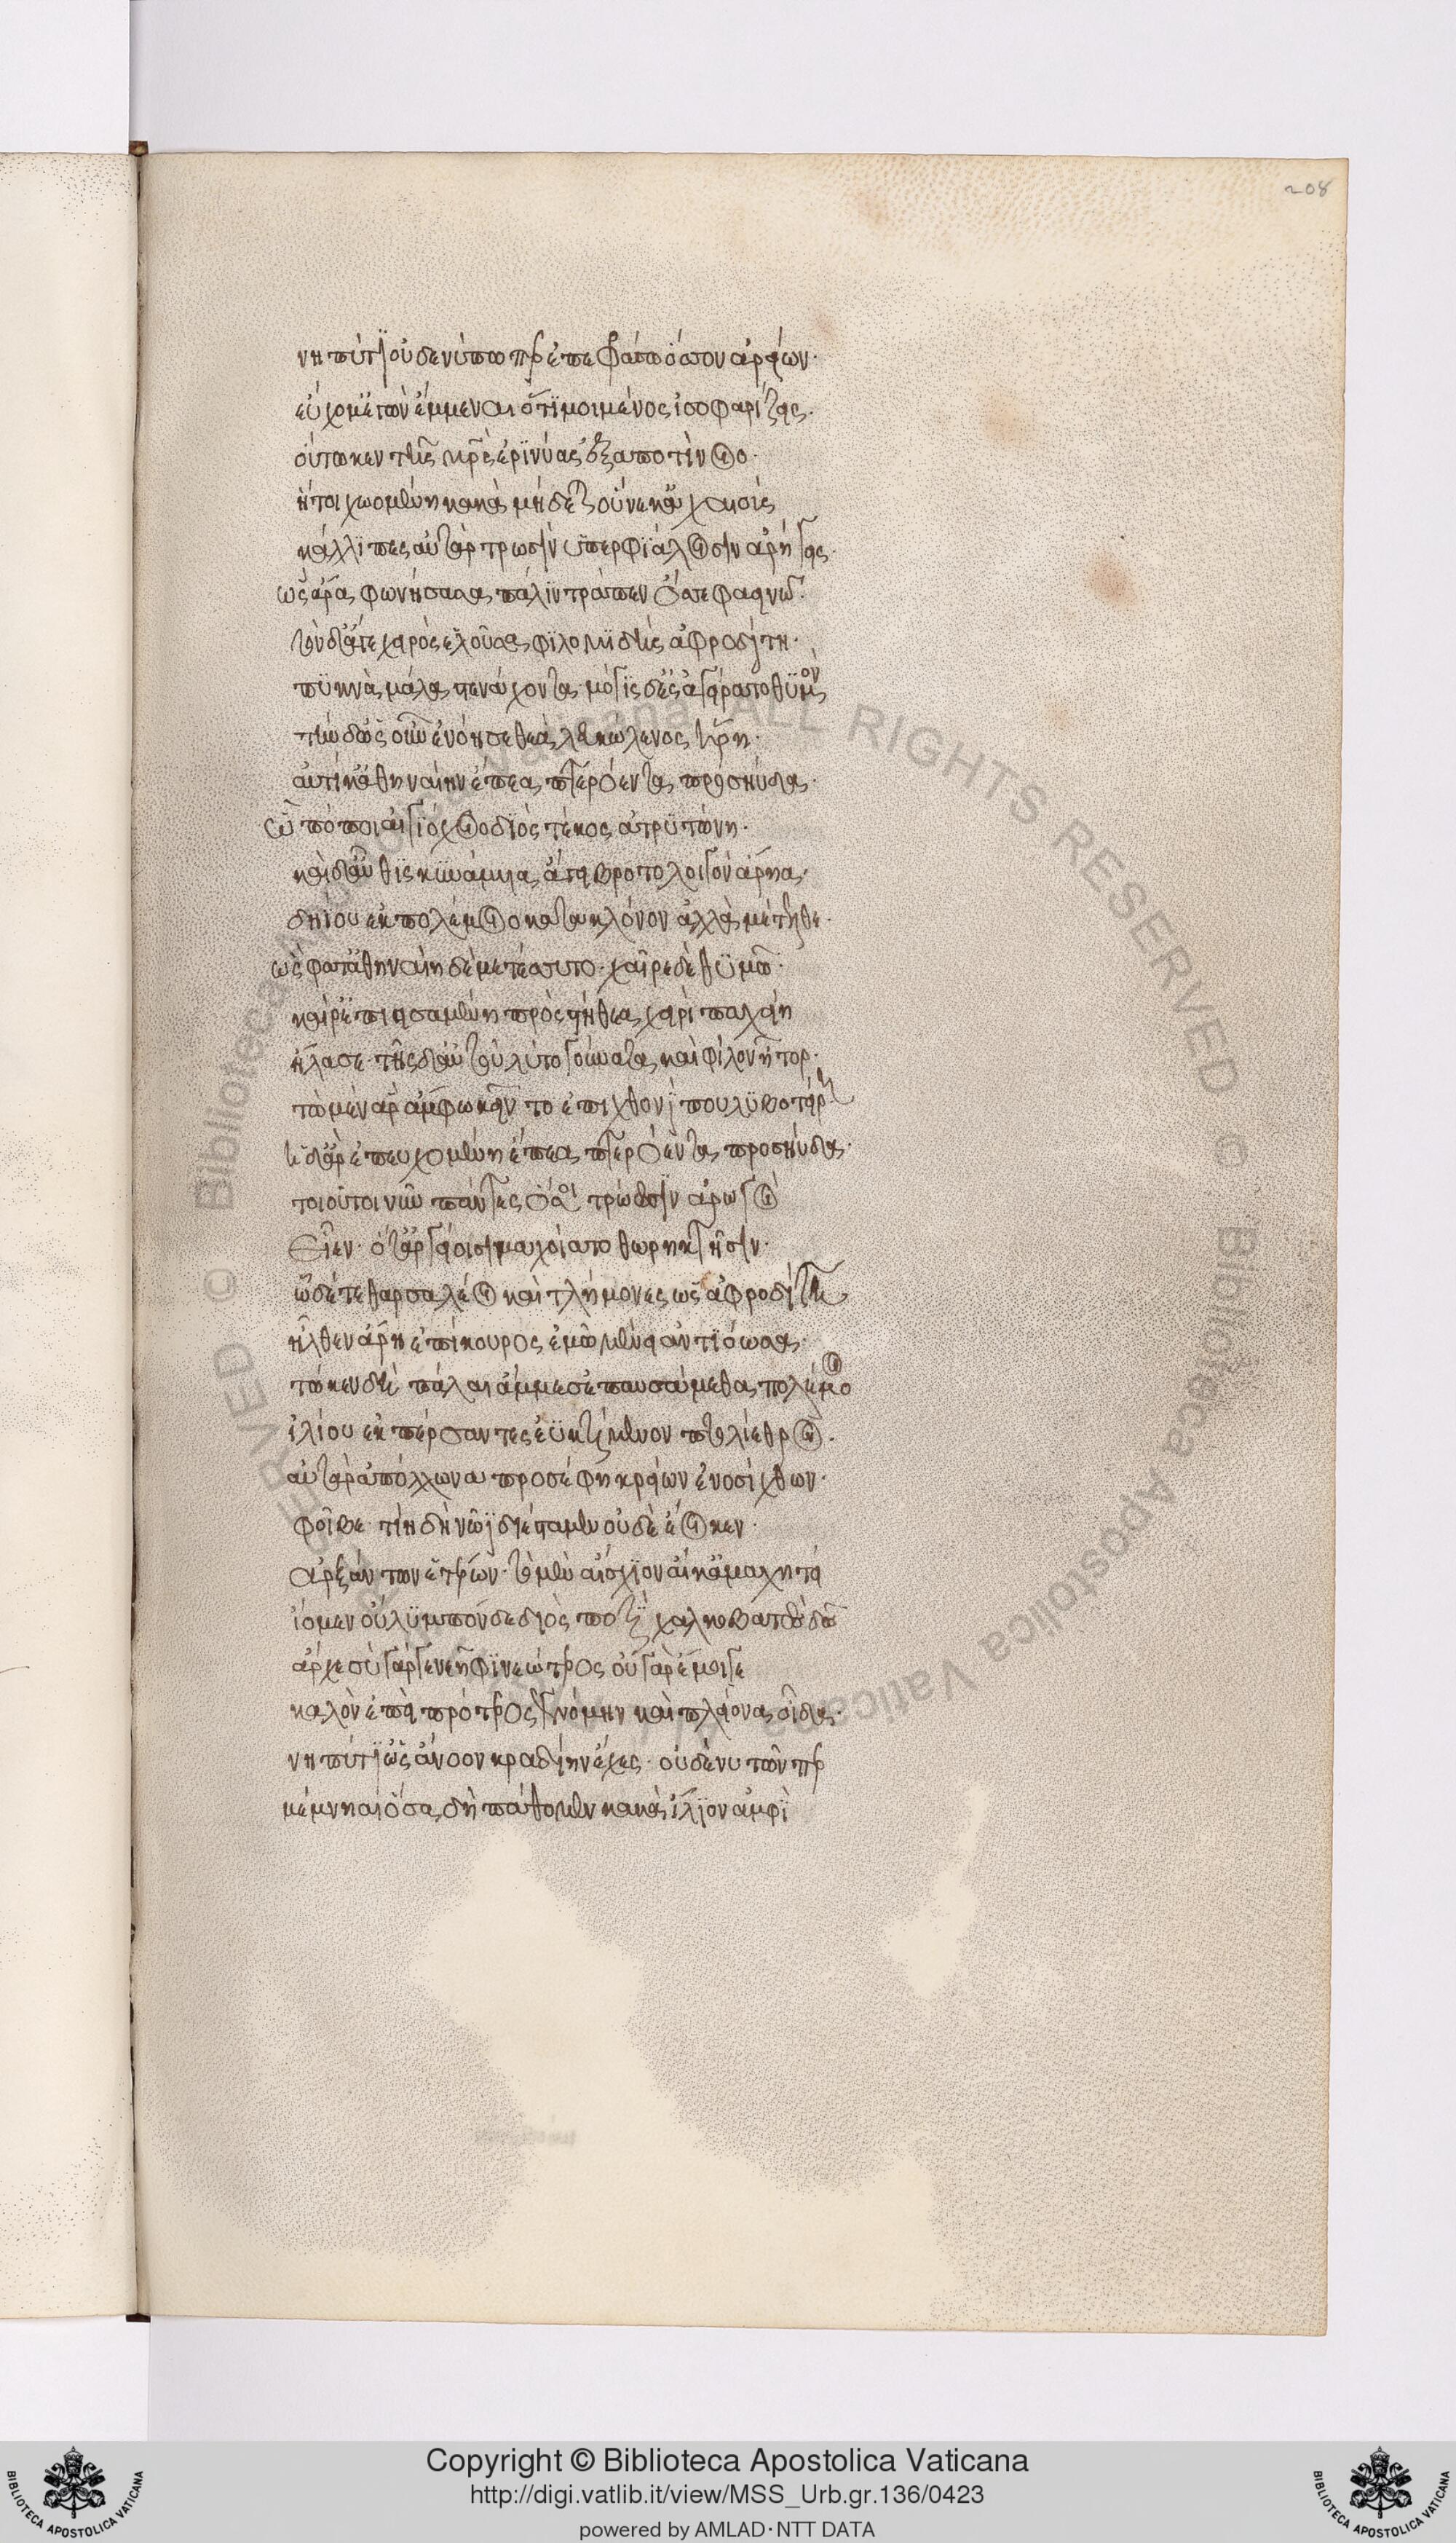 208
νηπύτι' οὐδέ νύ πώ περ ἐπεφράσω ὅσσον ἀρείων.
εὔχομ' ἐγὼν ἔμμεναι ὅτί μοι μένος ἰσοφαρίζεις.
οὕτω κεν τῆς μητρὸς ἐρινύας ἐξαποτίνοις
ἥ τοι χωομένη κακὰ μήδεται οὕνεκ' ἀχαιοὺς
κάλλιπες αὐτὰρ τρωσὶν ὑπερφιάλοισιν ἀρήγεις.
ὣς ἄρα φωνήσασα πάλιν τρέπεν ὄσσε φαεινώ.
τὸν δ' ἄγε χειρὸς ἑλοῦσα φιλομμειδὴς ἀφροδίτη.
πυκνὰ μάλα στενάχοντα μόγις δ' ἐσαγείρατο θυμόν
τὴν δ' ὡς οὖν ἐνόησε θεὰ λευκώλενος ἥρη.
αὐτίκ' ἀθηναίην ἔπεα πτερόεντα προσηύδα.
ὢ πόποι αἰγιόχοιο διὸς τέκος ἀτρυτώνη.
καὶ δ' αὖθις κυνάμυια ἄγει βροτολοιγὸν ἄρηα.
δηίου ἐκ πολέμοιο κατὰ κλόνον ἀλλὰ μέτελθε.
ὣς φάτ' ἀθηναίη δὲ μετέσσυτο. χαῖρε δὲ θυμῷ.
καί ῥ' ἐπιεισαμένη πρὸς στήθεα χειρὶ παχείῃ
ἤλασε. τῆς δ' αὐτοῦ λύτο γούνατα καὶ φίλον ἦτορ.
τὼ μὲν ἄρ' ἄμφω κεῖντο ἐπὶ χθονὶ πουλυβοτείρῃ
ἡ δ' ἄρ' ἐπευχομένη ἔπεα πτερόεντα προσηύδα.
τοιοῦτοι νῦν πάντες ὅσοι τρώεσσιν ἀρωγοὶ
εἶεν. ὅτ' ἀργείοισι μαχοίατο θωρηκτῇσιν.
ὧδέ τε θαρσαλέοι καὶ τλήμονες ὡς ἀφροδίτη
ἦλθεν ἄρῃ ἐπίκουρος ἐμῷ μένει ἀντιόωσα.
τώ κεν δὴ πάλαι ἄμμες ἐπαυσάμεθα πολέμοιο
ἰλίου ἐκπέρσαντες ἐϋκτίμενον πτολίεθρον.
αὐτὰρ ἀπόλλωνα προσέφη κρείων ἐνοσίχθων.
φοῖβε τίη δὴ νῶϊ διέσταμεν οὐδὲ ἔοικεν.
ἀρξάντων ἑτέρων. τὸ μὲν αἴσχιον αἴ κ' ἀμαχητεὶ
ἴομεν οὔλυμπόνδε διὸς ποτὶ χαλκοβατὲς δῶ
ἄρχε σὺ γὰρ γενεῆφι νεώτερος οὐ γὰρ ἔμοιγε
καλὸν ἐπεὶ πρότερος γενόμην καὶ πλείονα οἶδα.
νηπύτι' ὡς ἄνοον κραδίην ἔχες. οὐδέ νυ τῶν περ
μέμνηαι ὅσα δὴ πάθομεν κακὰ ἴλιον ἀμφὶ
Copyright © Biblioteca Apostolica Vaticana
http://digi.vatlib.it/view/MSS_Urb.gr.136/0423
powered by AMLAD·NTT DATA